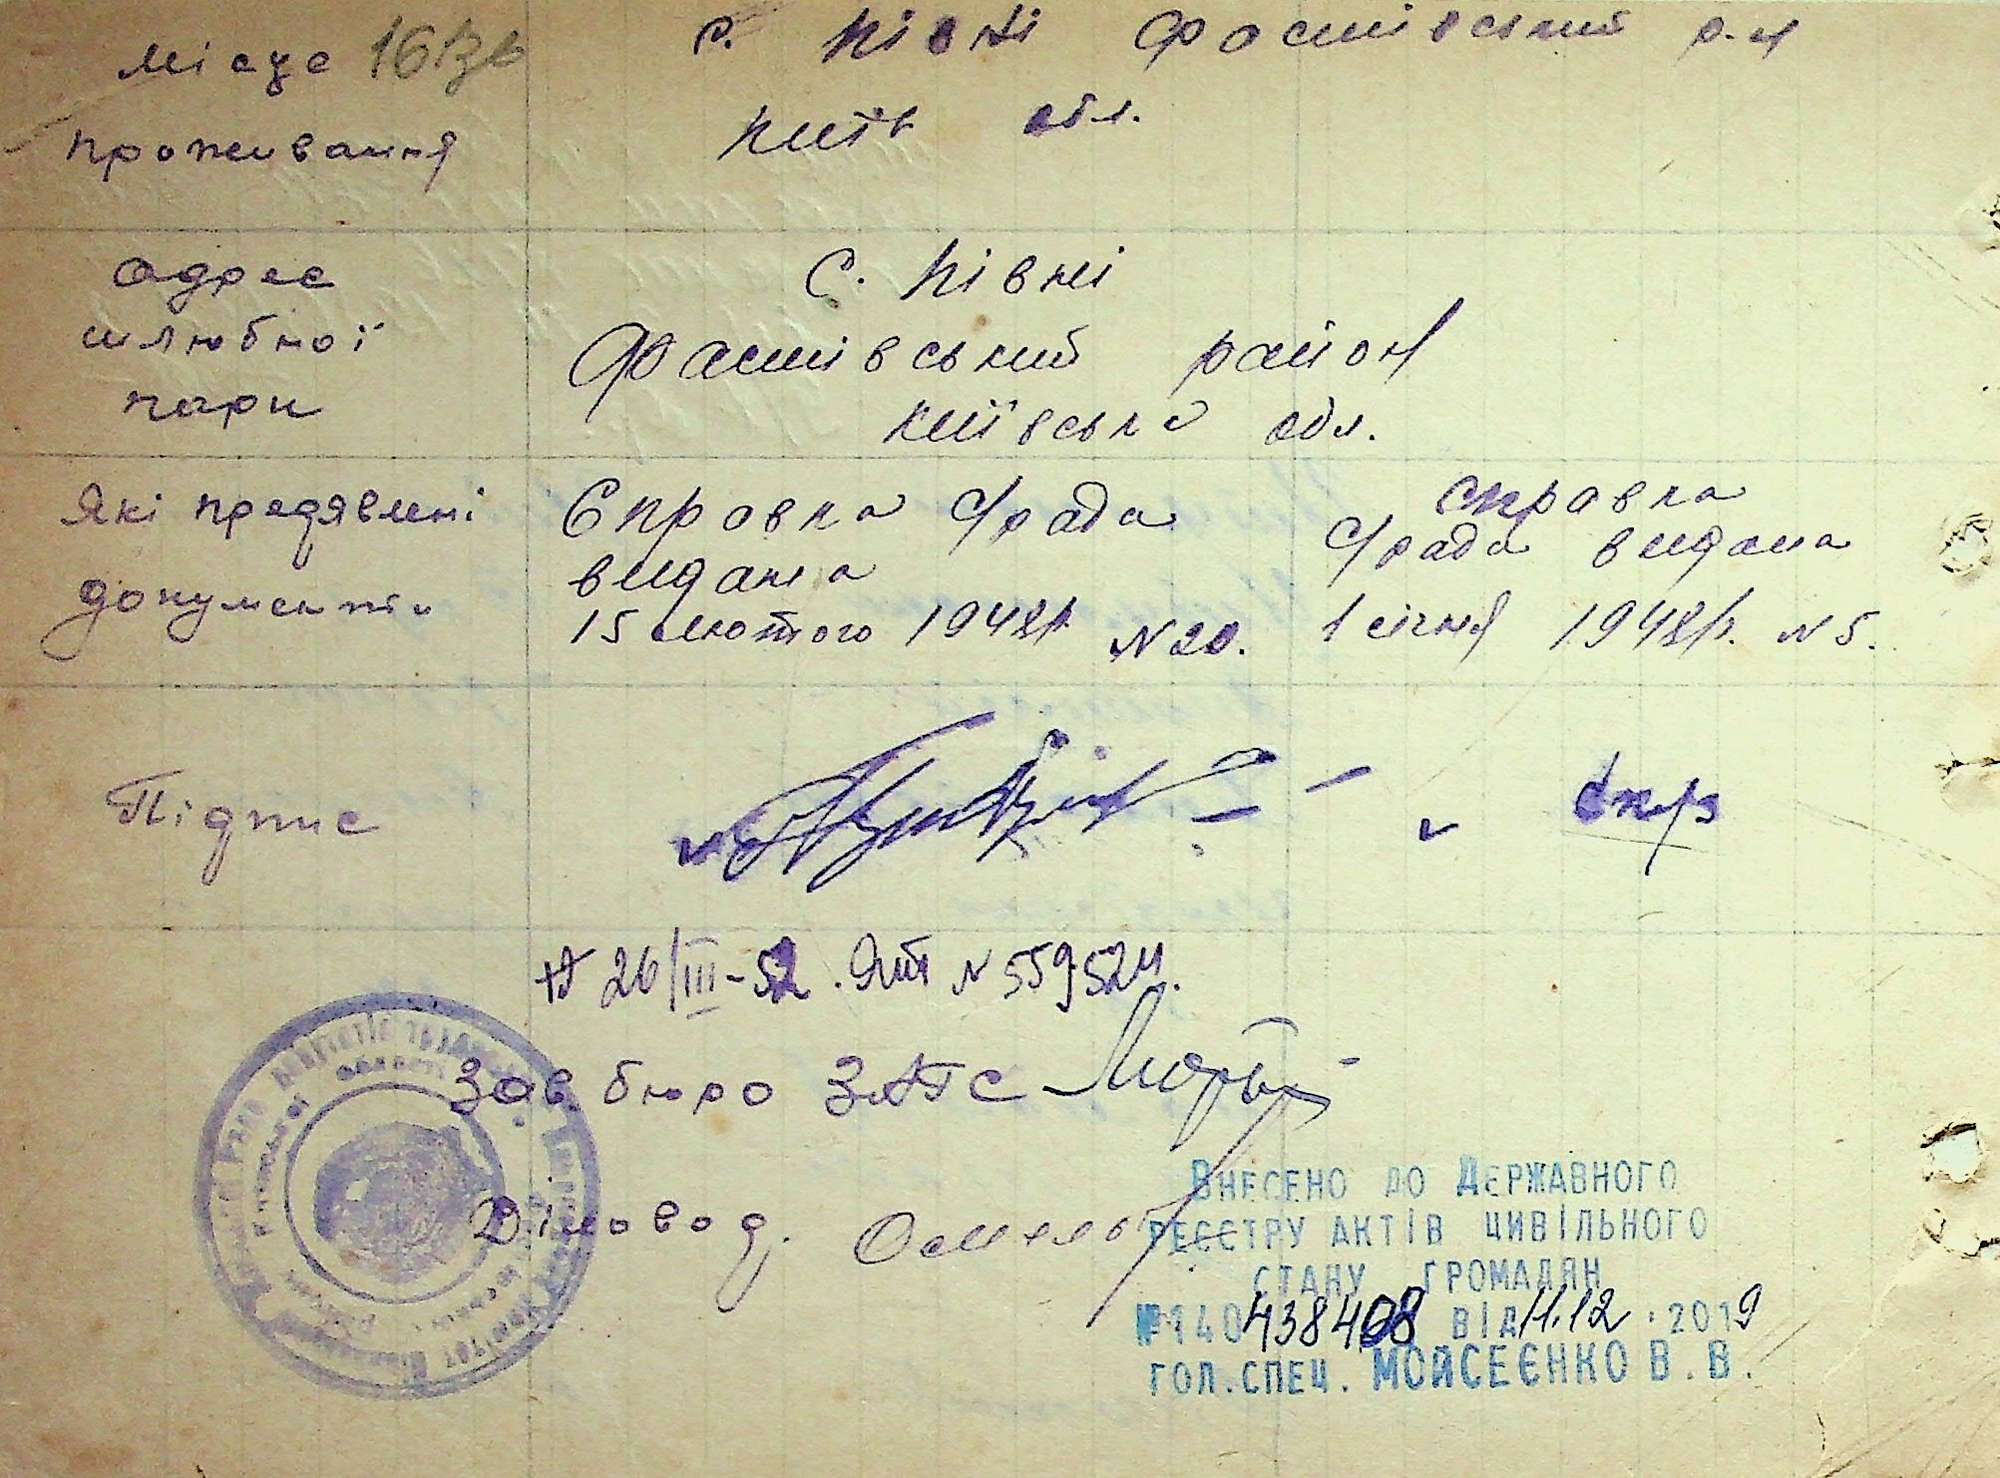 Місце 16 зв
проживання
с. Півні Фастівський р-н
Київ обл.
Адрес
шлюбної
пари
с. Півні
Фастівський район
Київська обл.
Які предявлені
документи
Справка с/рада
видана
15 лютого 1948 р. N 20.
справка
с/рада видана
1 січня 1948 р. N 5.
Підпис
26/III-52. N 559524.
Зав. бюро ЗАГС
Діловод.
Внесено до Державного
реєстру актів цивільного
стану громадян
№ 140438408 від 11.12.2019
гол. спец. Мойсеєнко В. В.